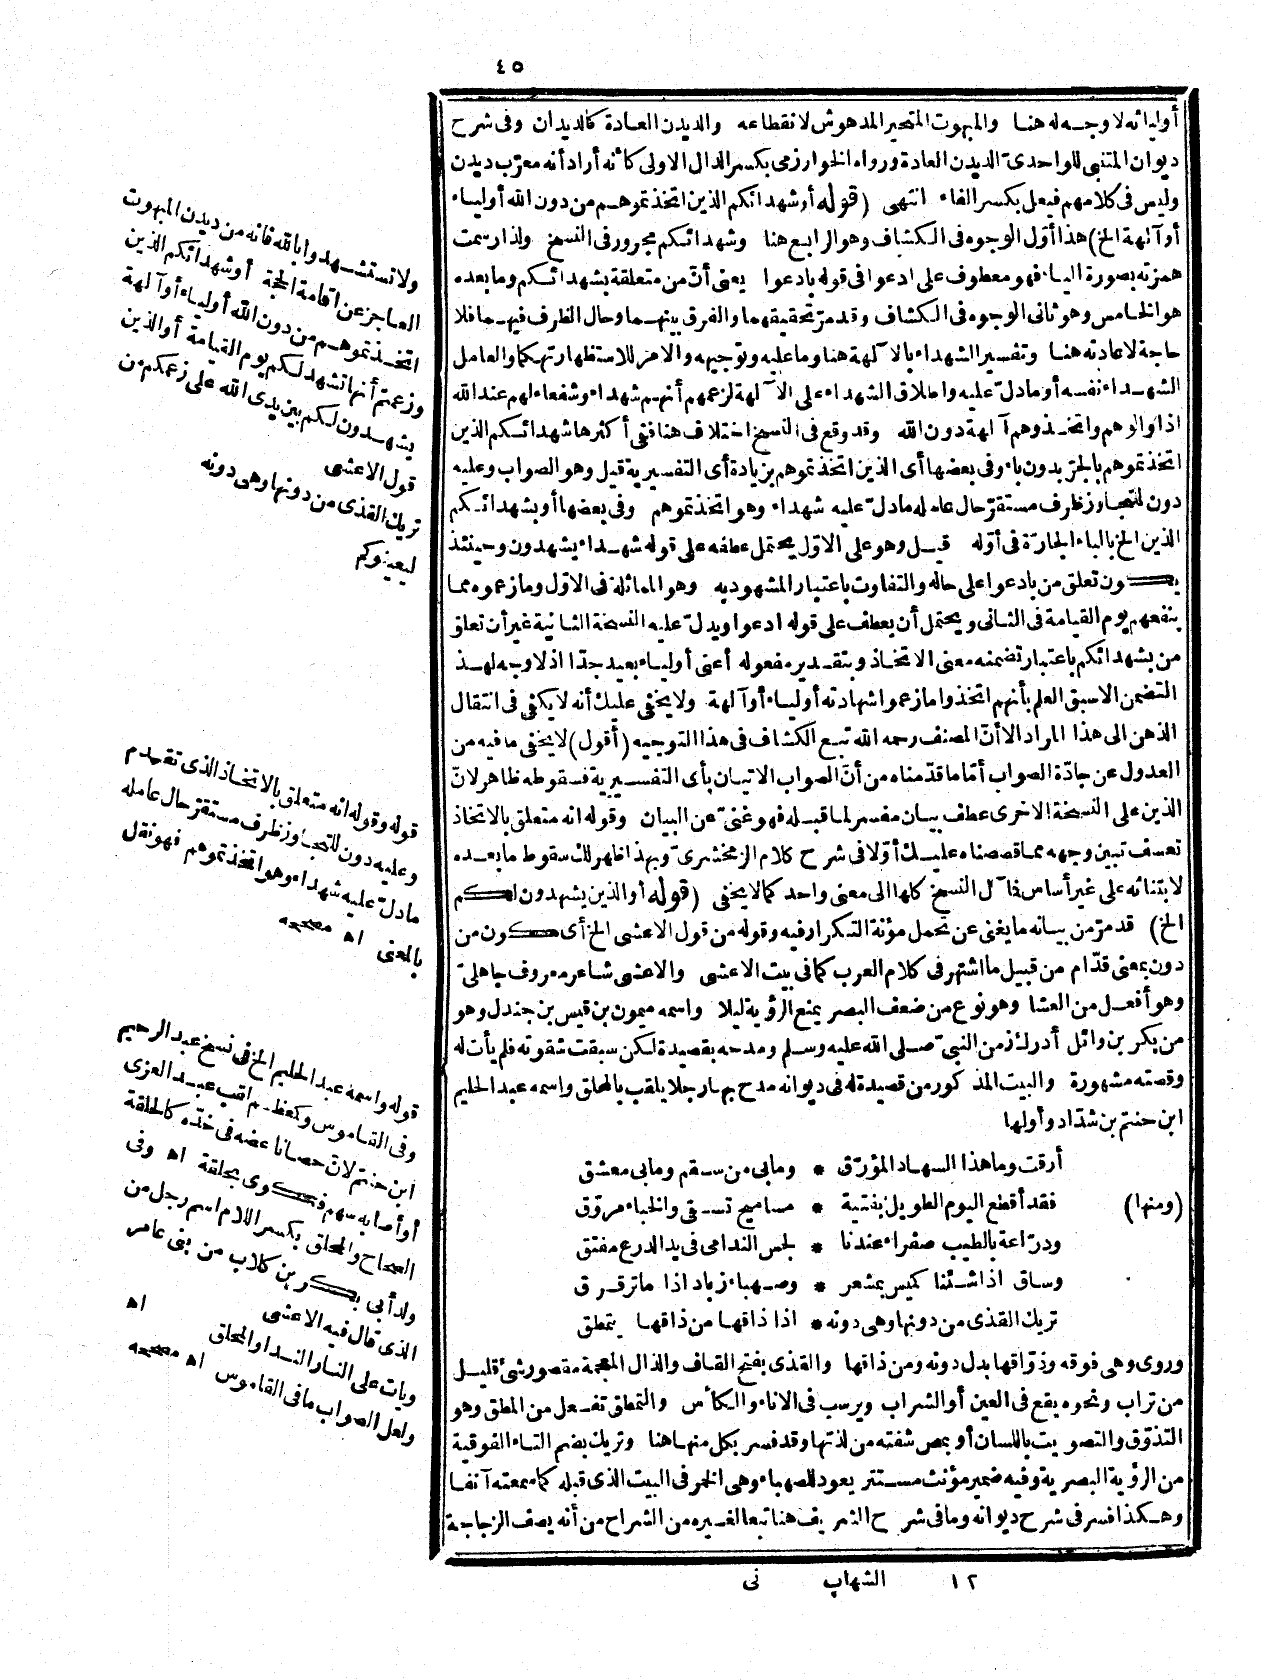 ٤٥
أوليائه لا وجه له هنا والمبهوت المتحير المدهوش لانقطاعه والديدن العادة كالديدان وفى شرح
ديوان المتنبى للواحدىّ الديدن العادة ورواه الخوارزمى بكسر الدال الاولى كأنه أراد أنه معرّب ديدن
وليس فى كلامهم فيعل بكسر الفاء انتهى (قوله أو شهدائكم الذين اتخذتموهم من دون الله أولياء
أو آلهة الخ) هذا أوّل الوجوه فى الكشاف وهو الرابع هنا وشهدائكم مجرور فى النسخ ولذا رسمت
همزته بصورة الياء فهو معطوف على ادعوا فى قوله بادعوا يعنى أنّ من متعلقة بشهدائكم وما بعده
هو الخامس وهو ثانى الوجوه فى الكشاف وقد مرّ تحقيقهما والفرق بينهما وحال الظرف فيهما فلا
حاجة لاعادته هنا وتفسير الشهداء بالآلهة هنا وما عليه وتوجيهه والامر للاستظهار تهكما والعامل
الشهداء نفسه أو ما دلّ عليه واطلاق الشهداء على الآلهة لزعمهم أنهم شهداء وشفعاء لهم عند الله
اذا والوهم واتخذوهم آلهة دون الله وقد وقع فى النسخ اختلاف هنا ففى أكثرها شهدائكم الذين
اتخذتموهم بالجرّ بدون باء وفى بعضها أى الذين اتخذتموهم بزيادة أى التفسيرية قيل وهو الصواب وعليه
دون للتجاوز ظرف مستقرّ حال عامله ما دلّ عليه شهداء وهو اتخذتموهم وفى بعضها أو بشهدائكم
الذين الخ بالباء الجارّة فى أوّله قيل وهو على الاوّل يحتمل عطفه على قوله شهداء يشهدون وحينئذ
يكون تعلق من بادعوا على حاله والتفاوت باعتبار المشهود به وهو المماثلة فى الاوّل وما زعموه مما
ينفعهم يوم القيامة فى الثانى ويحتمل أن يعطف على قوله ادعوا ويدلّ عليه النسخة الثانية غير أن تعلق
من بشهدائكم باعتبار تضمنه معنى الاتخاذ وبتقدير مفعوله أعنى أولياء بعيد جدّا اذ لا وجه لهذ
التضمن الاسبق العلم بأنهم اتخذوا ما زعموا شهادته أولياء أو آلهة ولا يخفى عليك أنه لا يكفى فى انتقال
الذهن الى هذا المراد الا أنّ المصنف رحمه الله تبع الكشاف فى هذا التوجيه (أقول) لا يخفى ما فيه من
العدول عن جادّة الصواب أمّا ما قدّمناه من أنّ الصواب الاتيان بأى التفسيرية فسقوطه ظاهر لانّ
الذين على النسخة الاخرى عطف بيان مفسر لما قبله فهو غنىّ عن البيان وقوله انه متعلق بالاتخاذ
تعسف تبين وجهه مما قصصناه عليك أوّلا فى شرح كلام الزمخشرىّ وبهذا ظهر لك سقوط ما بعده
لابتنائه على غير أساس فمآل النسخ كلها الى معنى واحد كما لا يخفى (قوله أو الذين يشهدون لكم
الخ) قد مرّ من بيانه ما يغنى عن تحمل مؤنة التكرار فيه وقوله من قول الاعشى الخ أى يكون من
دون بمعنى قدّام من قبيل ما اشتهر فى كلام العرب كما فى بيت الاعشى والاعشى شاعر معروف جاهلىّ
وهو أفعل من العشا وهو نوع من ضعف البصر يمنع الرؤية ليلا واسمه ميمون بن قيس بن جندل وهو
من بكر بن وائل أدرك زمن النبىّ صلى الله عليه وسلم ومدحه بقصيدة لكن سبقت شقوته فلم يأت له
وقصته مشهورة والبيت المذكور من قصيدة له فى ديوانه مدح بها رجلا يلقب بالمحلق واسمه عبد الحليم
ابن حنتم بن شدّاد وأولها
أرقت وما هذا السهاد المؤرّق * وما بى من سقم وما بى معشق
(ومنها) فقد أقطع اليوم الطويل بفتية * مساميح تسقى والخباء مروّق
ودرّاعة بالطيب صفراء عندنا * لجس الندامى فى يد الدرع مفتق
وساق اذا شئنا كميس بمشعر * وصهباء زباد اذا ما ترقرق
تريك القذى من دونها وهى دونه * اذا ذاقها من ذاقها يتمطق
وروى وهى فوقه وذوّاقها بدل دونه ومن ذاقها والقذى بفتح القاف والذال المعجمة مقصور شئ قليل
من تراب ونحوه يقع فى العين أو الشراب ويرسب فى الاناء والكأس والتمطق تفعل من المطق وهو
التذوّق والتصويت باللسان أو بمص شفته من لذتها وقد فسر بكل منهما هنا وتريك بضم التاء الفوقية
من الرؤية البصرية وفيه ضمير مؤنث مستتر يعود للصهباء وهى الخمر فى البيت الذى قبله كما سمعته آنفا
وهكذا فسر فى شرح ديوانه وما فى شرح الشريف هنا تبعا لغيره من الشراح من أنه يصف الزجاجة
١٢ الشهاب نى
ولا تستشهدوا بالله فانه من ديدن المبهوت
العاجز عن اقامة الحجة أو شهدائكم الذين
اتخذتموهم من دون الله أولياء أو آلهة
وزعمتم أنها تشهد لكم يوم القيامة أو الذين
يشهدون لكم بين يدى الله على زعمكم من
قول الاعشى
تريك القذى من دونها وهى دونه
ليعينوكم
قوله وقوله انه متعلق بالاتخاذ الذى تقدم
وعليه دون للتجاوز ظرف مستقرّ حال عامله
ما دلّ عليه شهداء وهو اتخذتموهم فهو نقل
بالمعنى اه مصححه
قوله واسمه عبد الحليم الخ فى نسخ عبد الرحيم
وفى القاموس وكمعظم لقب عبد العزى
ابن حنتم لانّ حصانا عضه فى خدّه كالحلقة
أو أصابه سهم فكوى بحلقة اه وفى
الصحاح والمحلق بكسر اللام اسم رجل من
ولد أبى بكر بن كلاب من بنى عامر
الذى قال فيه الاعشى
وبات على النار الندا والمحلق اه
ولعل الصواب ما فى القاموس اه مصححه